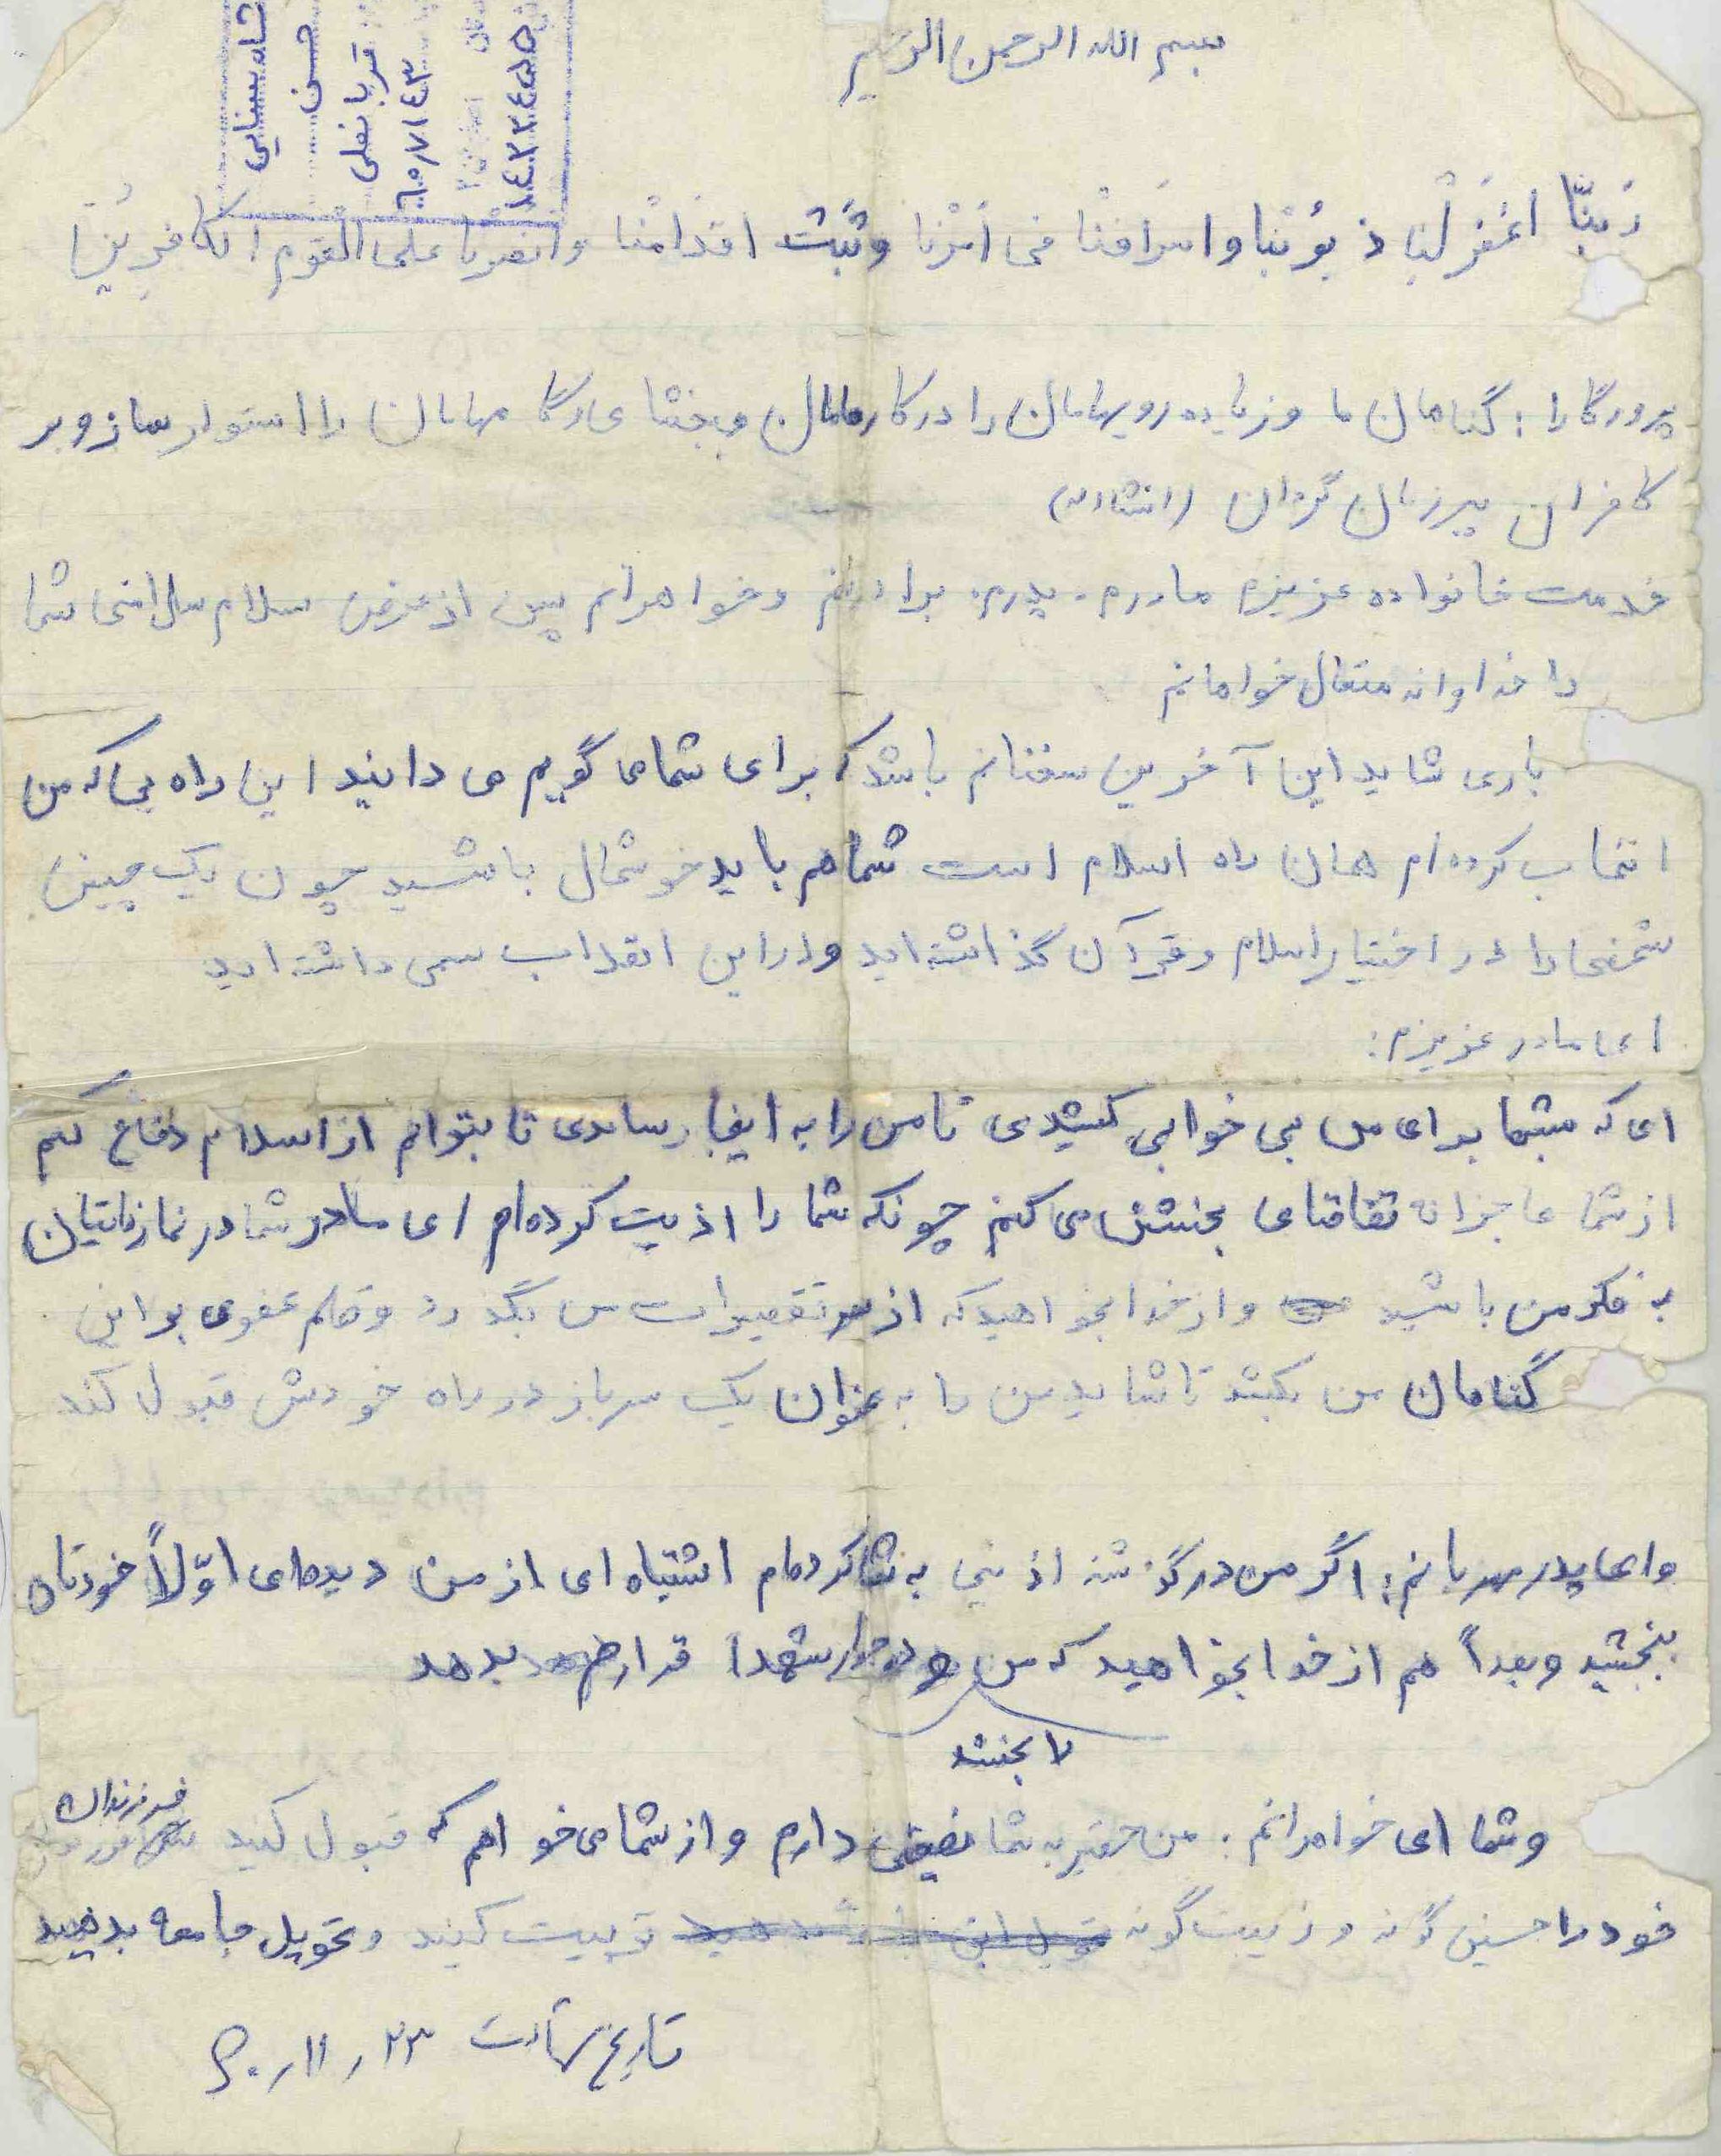 بسم الله الرحمن الرحیم
شاه سنایی
حسن
قربانعلی
٦٠٫٧١٤٣
١٤٢٢٤٥٥
رَبَنّا اغْفِرلَنٰا ذنوُبَنٰا وَاسرَافَنٰا فی اَمْرِنٰا وثَبِّتْ اَقدٰامَنٰا وانصُرنٰا عَلَی الْقَوم الکافِرینَ
پرورگارا: گناهان ما و زیاده رویهامان را در کارمامان ببخشای و گامهامان را استوار ساز و بر
کافران پیرزمان گردان (انشااله)
خدمت خانواده عزیزم مادرم. پدرم. برادرانم و خواهرانم پس از عرض سلام سلامتی شما
را خداوند متعال خواهانم
باری شاید این آخرین سخنانم باشد که برای شما می گویم می دانید این راه یی که من
انتخاب کرده ام همان راه اسلام است شما هم باید خوشحال باشید چون یک چنین
شخصی را در اختیار اسلام و قرآن گذاشته اید و در این انقلاب سهمی داشته اید
ای مادر عزیزم:
ای که شبها برای من بی خوابی کشیدی تا من را به اینجا رساندی تا بتوانم از اسلام دفاع کنم
از شما عاجزانه تقاضای بخشش می کنم چونکه شما را اذیت کرده ام ای مادر شما در نمازهایتان
به فکر من باشید و از خدا بخواهید که از سر تقصیرات من بگذرد و قلم عفوی بر این
گناهان من بکشد تا شاید من را به عنوان یک سرباز در راه خودش قبول کند
وای پدر مهربانم: اگر من در گذشته اذیتی به شما کرده ام اشتباه ای از من دیده ای اوّلاً خودتان
ببخشید و بعداً هم از خدا بخواهید که من و در جوار شهدا قرار بدهد
را ببخشد
و شما ای خواهرانم: من حقیر به شما نصیحتی دارم و از شما می خواهم که قبول کنید فرزندان
خود را حسین گونه و زینب گونه تربیت کنید و تحویل جامعه بدهید
تاریخ شهادت ٢٣٫١١٫٦٠